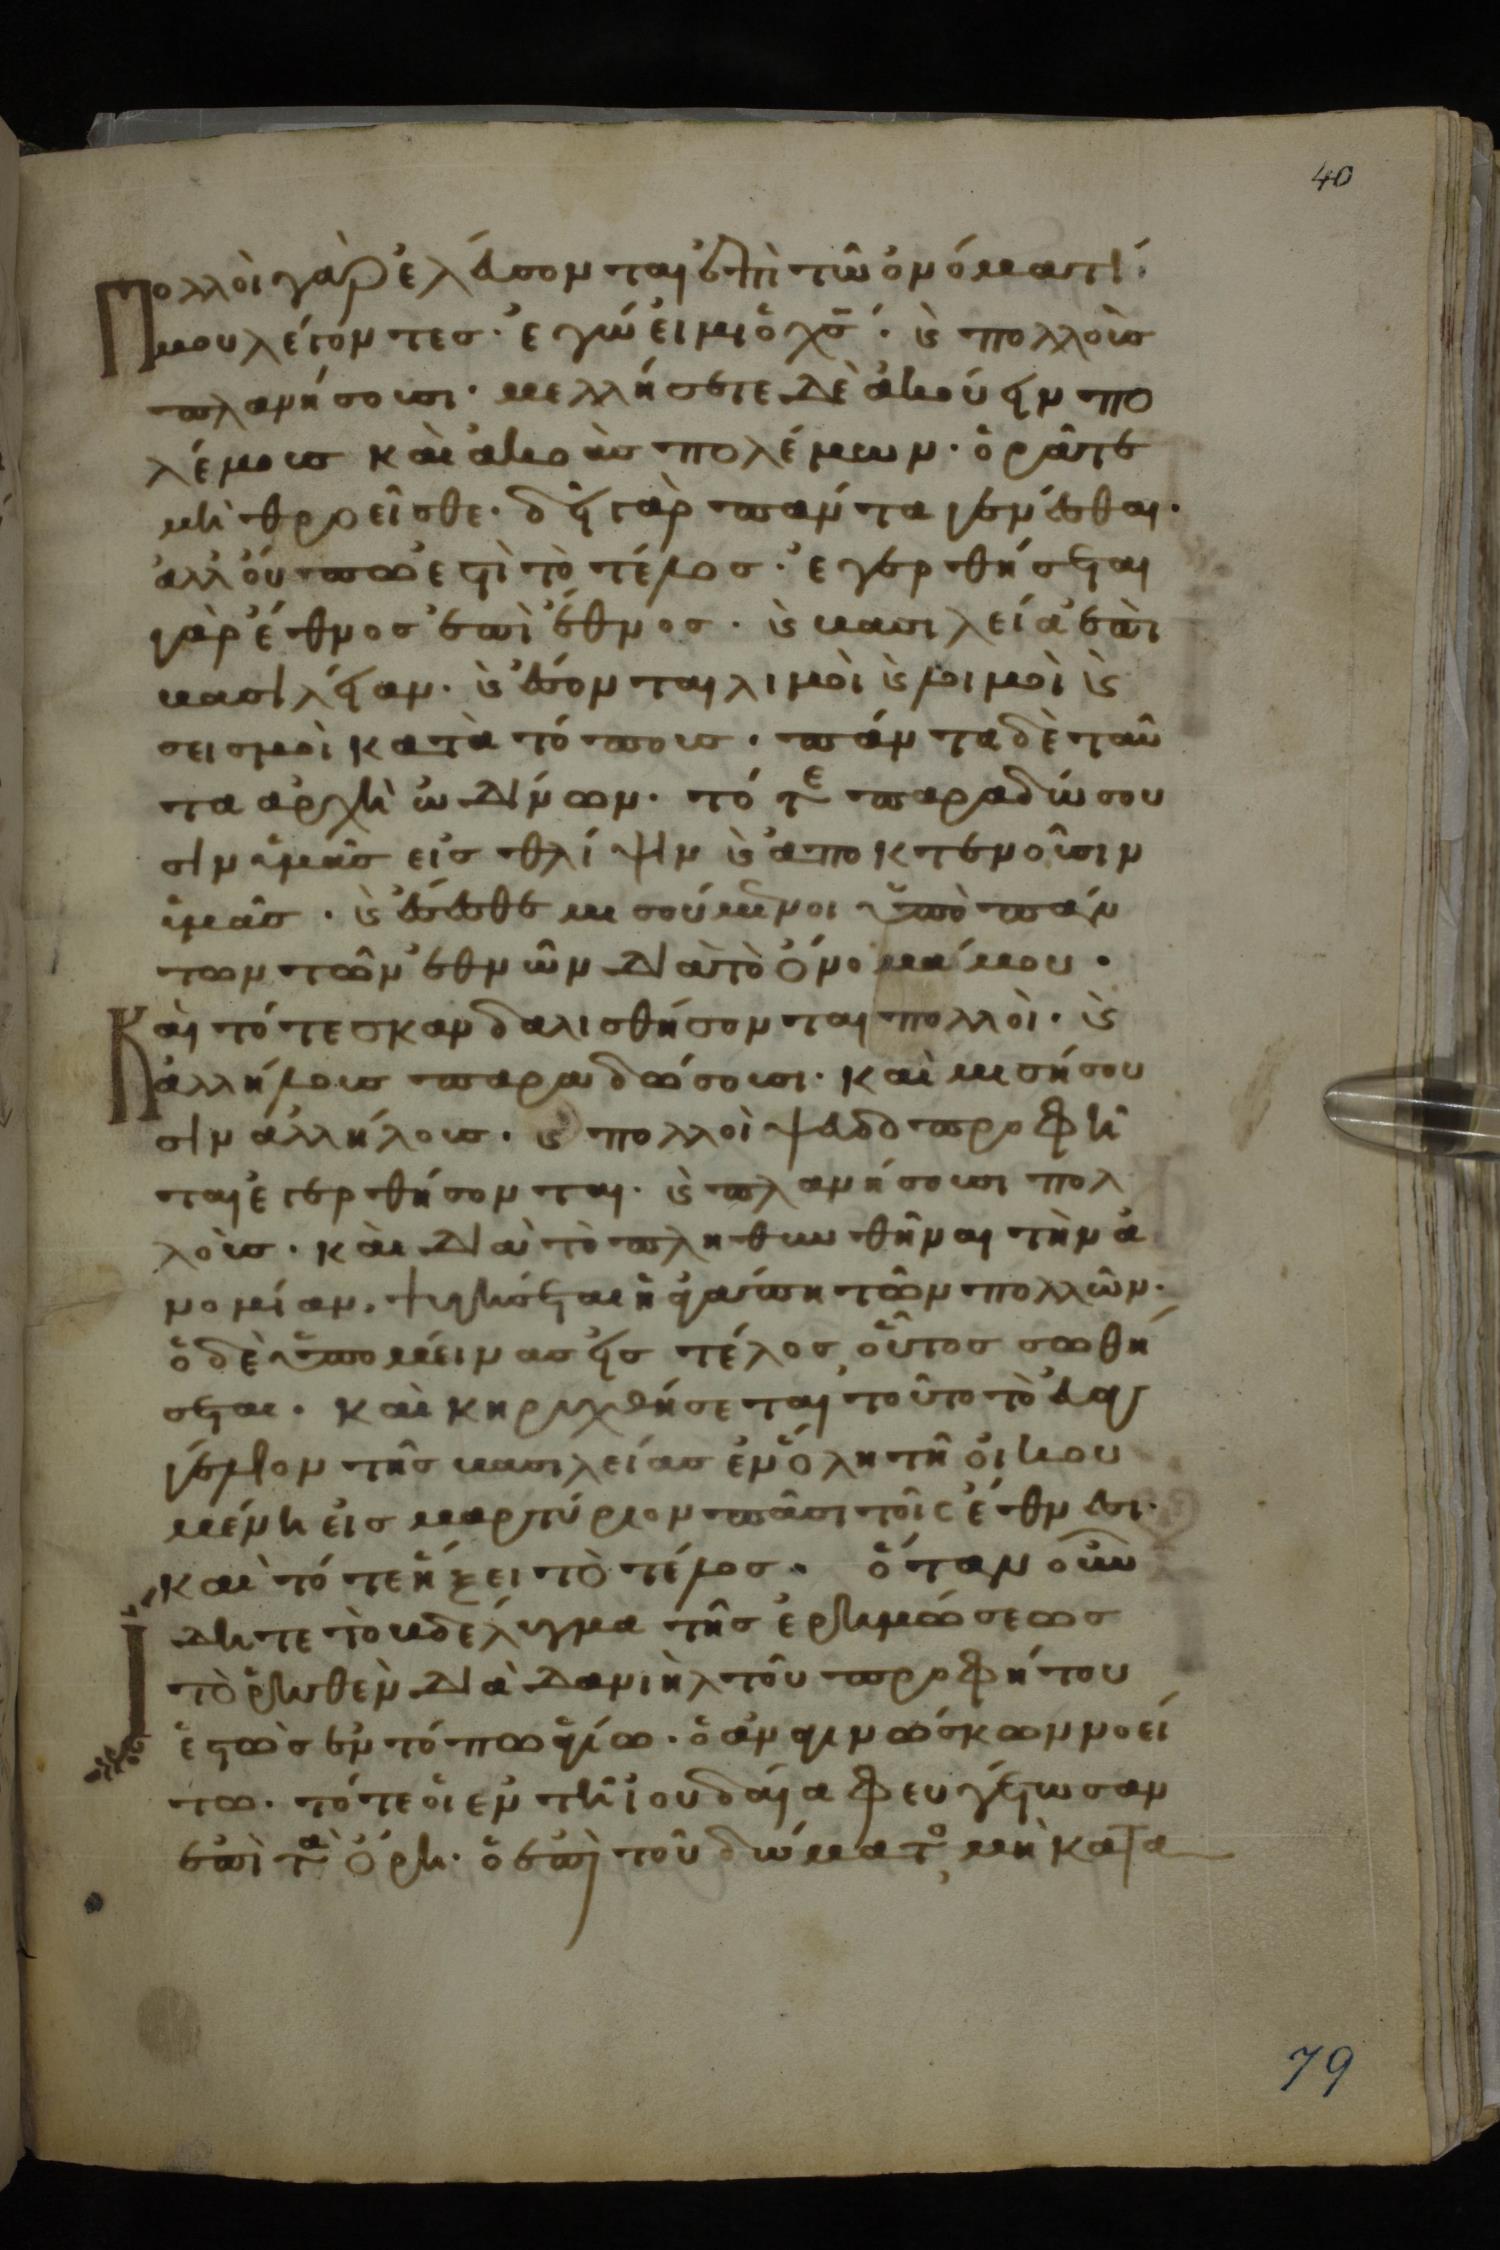 40
Πολλοὶ γὰρ ἐλεύσονται ἐπὶ τῶ ὀνόματί
μου λέγοντες· ἐγώ εἰμι ὁ χς· ϗ πολλοὺς
πλανήσουσι· μελλήσετε δὲ ἀκούειν πο
λέμους καὶ ἀκοὰς πολέμων· ὁρᾶτε
μὴ θροεῖσθε· δεῖ γὰρ πάντα γενέσθαι·
ἀλλ' οὔπω ἐστὶ τὸ τέλος· ἐγερθήσεται
γὰρ ἔθνος ἐπὶ ἔθνος· ϗ βασιλεία ἐπὶ
βασιλείαν· ϗ ἔσονται λιμοὶ ϗ λοιμοὶ ϗ
σεισμοὶ κατὰ τόπους· πάντα δὲ ταῦ
τα ἀρχὴ ὠδίνων· τότε παραδώσου
σιν ὑμᾶς εἰς θλίψιν ϗ ἀποκτενοῦσιν
ὑμᾶς· ϗ ἔσεσθε μισούμενοι ὑπὸ πάν
των τῶν ἐθνῶν διὰ τὸ ὄνομά μου·
Καὶ τότε σκανδαλισθήσονται πολλοὶ· ϗ
ἀλλήλους παραδώσουσι· καὶ μισήσου
σιν ἀλλήλους· ϗ πολλοὶ ψευδοπροφῆ
ται ἐγερθήσονται· ϗ πλανήσουσι πολ
λοὺς· καὶ διὰ τὸ πληθυνθῆναι τὴν ἀ
νομίαν, ψυγήσεται ἡ ἀγάπη τῶν πολλῶν·
ὁ δὲ ὑπομείνας εἰς τέλος οὗτος σωθή
σεται· καὶ κηρυχθήσεται τοῦτο τὸ εὐαγ
γέλιον τῆς βασιλείας ἐν ὅλη τῆ οἰκου
μένη εἰς μαρτύριον πᾶσι τοῖς ἔθνεσι·
καὶ τότε ἥξει τὸ τέλος· ὅταν οὖν
Ἴδητε τὸ βδέλυγμα τῆς ἐρημώσεως
τὸ ῥηθὲν διὰ Δανιὴλ τοῦ προφήτου
ἑστὼς ἐν τόπω ἁγίω· ὁ ἀναγινώσκων νοεί
τω· τότε οἱ ἐν τῆ ἰουδαία φευγέτωσαν
ἐπὶ τὰ ὄρη· ὁ ἐπὶ τοῦ δώματος μὴ κατα
79